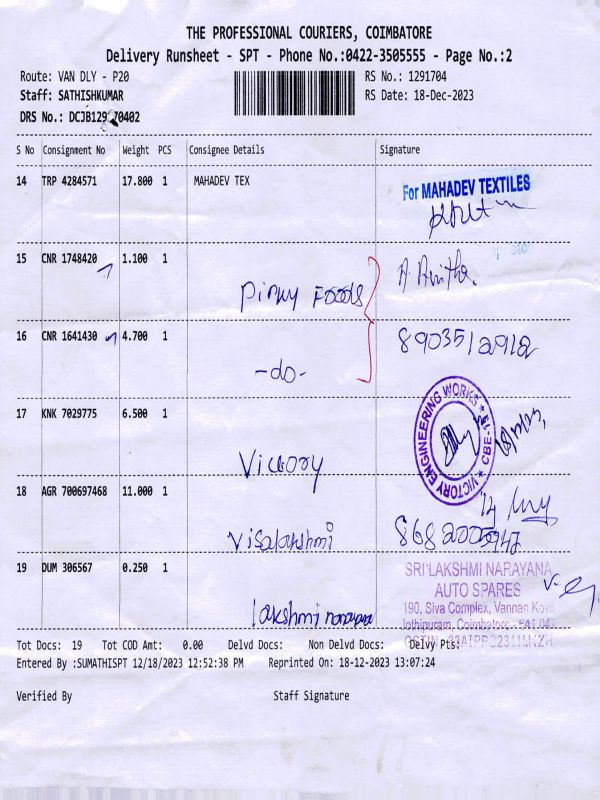 THE PROFESSIONAL COURIERS, COIMBATORE
Delivery Runsheet - SPT - Phone No.:0422-3505555 - Page No.:2
Route: VAN DLY - P20 RS No.: 1291704
Staff: SATHISHKUMAR RS Date: 18-Dec-2023
DRS No.: DCJB129 70402
S No Consignment No Weight PCS Consignee Details Signature
14 TRP 4284571 17.800 1 MAHADEV TEX
For MAHADEV TEXTILES
15 CNR 1748420 1.100 1
Pinky Foods A. Anitha.
16 CNR 1641430 4.700 1
-do- 8903512912
17 KNK 7029775 6.500 1
Victory
VICTORY ENGINEERING WORKS ★ CBE
18 AGR 700697468 11.000 1
Visalakshmi 868200
19 DUM 306567 0.250 1
SRI LAKSHMI NARAYANA
AUTO SPARES
190, Siva Complex, Vannan Kovil
Jothipuram, Coimbatore - 641 047
lakshmi narayana
Tot Docs: 19 Tot COD Amt: 0.00 Delvd Docs: Non Delvd Docs: Delvy Pts:
Entered By :SUMATHISPT 12/18/2023 12:52:38 PM Reprinted On: 18-12-2023 13:07:24
Verified By Staff Signature